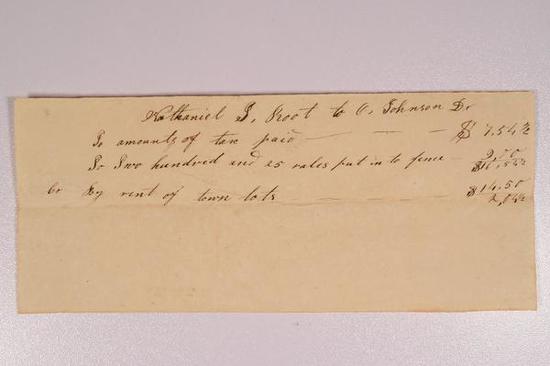 Nathaniel S. Root to O. Johnson Dr
To amounts of tax paid — — — $ 7.54 ½
To Two hundred and 25 rales put in to fence - 9.00
$16.54½
Cr By rent of town lots — — — $14.50
2,04½